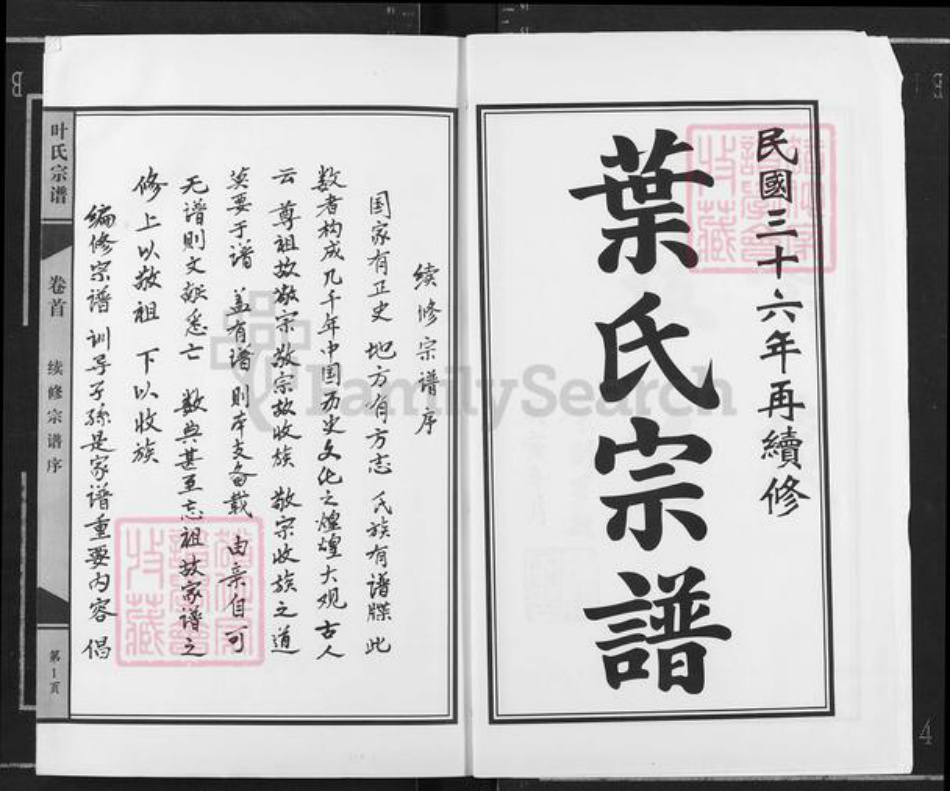 民國三十六年再續修
葉氏宗譜
续修宗谱序
国家有正史 地方有方志 氏族有谱牒 此
数者构成几千年中国历史文化之煌煌大观 古人
云 尊祖故敬宗 敬宗故收族 敬宗收族之道
莫要于谱 盖有谱则本支备载 由亲自可
无谱则文献悉亡 数典甚至忘祖 故家谱之
修 上以敬祖 下以收族
编修宗谱 训导子孫是家谱重要内容 倡
叶氏宗谱
卷首
续修宗谱序
第1页
FamilySearch
收藏
收藏
B
B
4